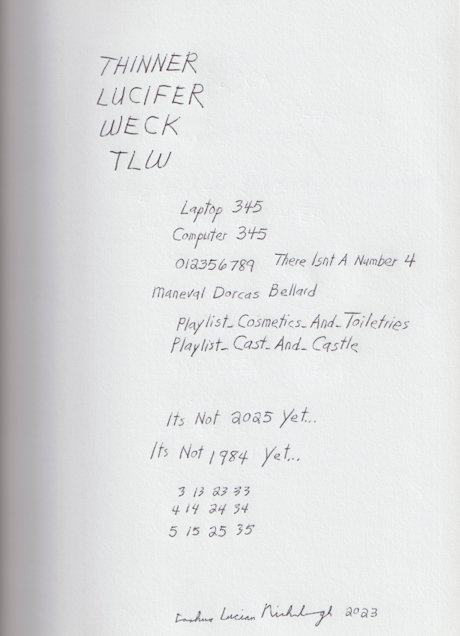 THINNER
LUCIFER
WECK
TLW
Laptop 345
Computer 345
012356789 There Isnt A Number 4
Maneval Dorcas Bellard
Playlist_Cosmetics_And_Toiletries
Playlist_Cast_And_Castle
Its Not 2025 Yet...
Its Not 1984 Yet...
3 13 23 33
4 14 24 34
5 15 25 35
Lucian 2023